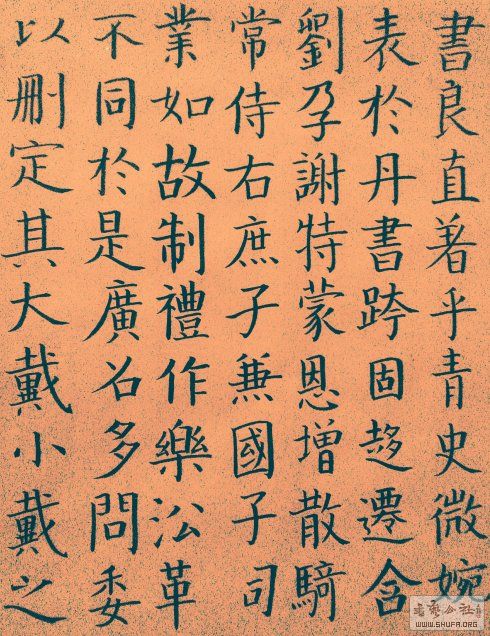 書良直著乎青史微婉
表於丹書跨固趍遷含
劉孕謝特蒙恩增散騎
常侍右庶子兼國子司
業如故制禮作樂㳂革
不同於是廣召多問委
以刪定其大戴小戴之
書藝公社
WWW.SHUFA.ORG